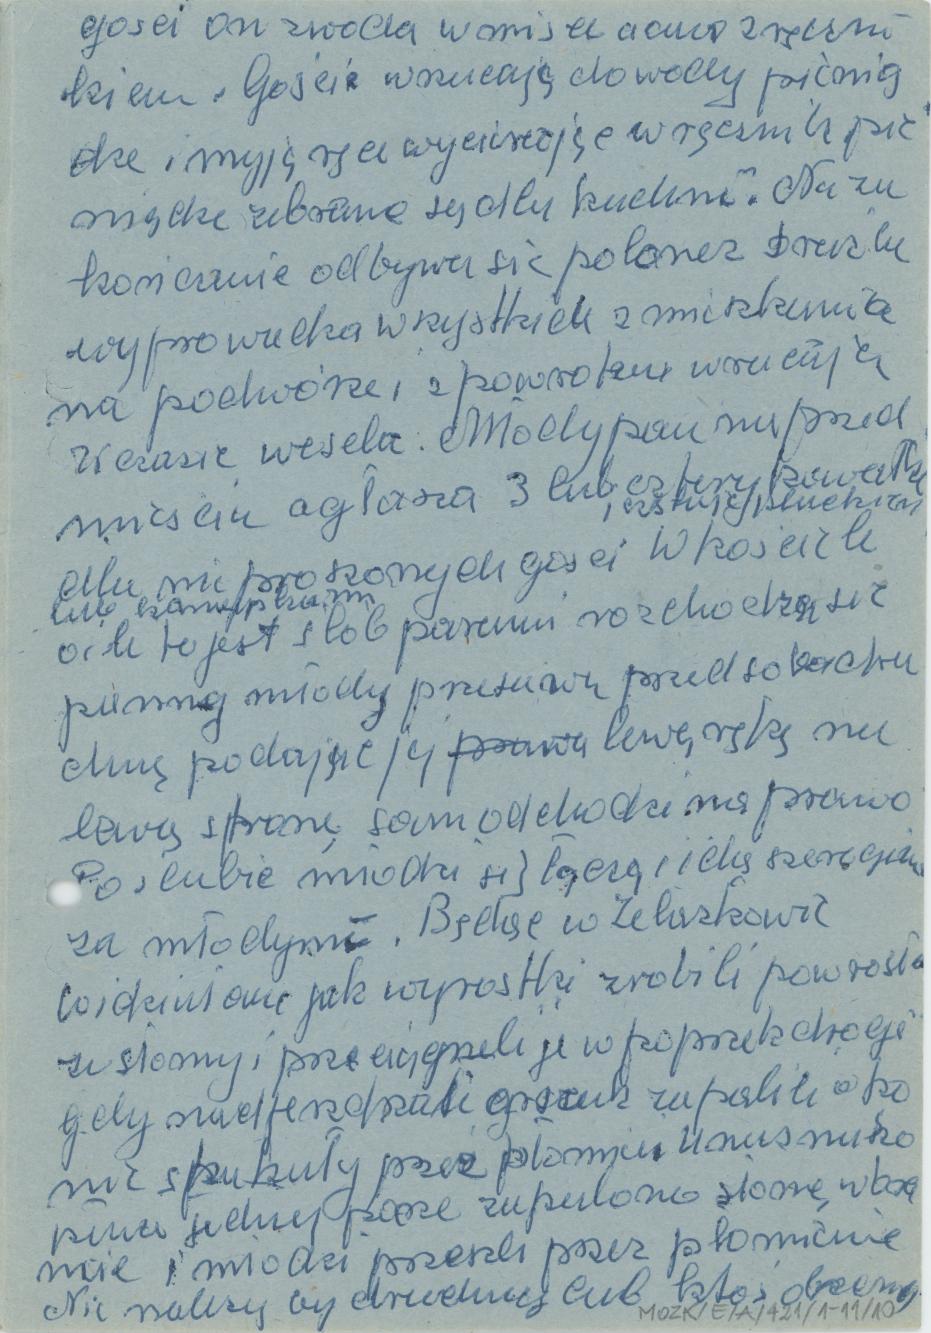 gości on z woda w misce a
kiem. Goście wrzucają do wody pienią
dze i myją ręce wycierając w ręcznik pie
niądze zebrane są dla kuchni. Na za
kończenie odbywa się polonez
wyprowadka wszystkich z mieszkania
na podwórze i z powrotem wracają
W czasie wesela. Młody pan na przed
mieściu ogłasza 3 lub cztery kawałki
dla nie proszonych gości W kościele
lub kanapkami
o ile to jest ślob parami rozchodzą się
panną młody przesuwa przed sobą
chną podając jej prawa lewą ręką na
lewą stronę sam odchodzi na prawo
Po ślubie młodzi się łączą i idą szeregiem
za młodymi. Będąc w Żelazkowie
widziałam jak wyrostki zrobili powrosła
ze słomy i przeciągneli je w poprzek drogi
gdy nadjeżdżali zapalili a ko
nie skakały przez płomień U nas nisko
jednej parze zapalono słomę w bra
mie i młodzi przeszli przez płomienie
Nie należy by druchny lub ktoś obcemy
MOZK/E/A/421/1-11/10